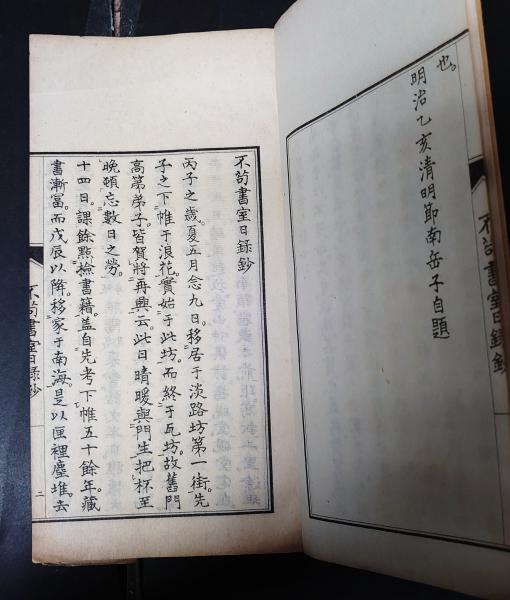 也
明治乙亥清明節南岳子自題
不苟書室日錄鈔
不苟書室日錄鈔
丙子之歲夏五月念九日移居于淡路坊第一街先
子之下帷于浪花實始于此坊而終于瓦坊故舊門
高第弟子皆賀將再興云此日晴暖與門生把杯至
晩頓忘數日之勞
十四日課餘點撿書籍蓋自先考下帷五十餘年藏
書漸冨而戊辰以降移家于南海是以匣裡塵堆去
不苟書室日錄鈔
二